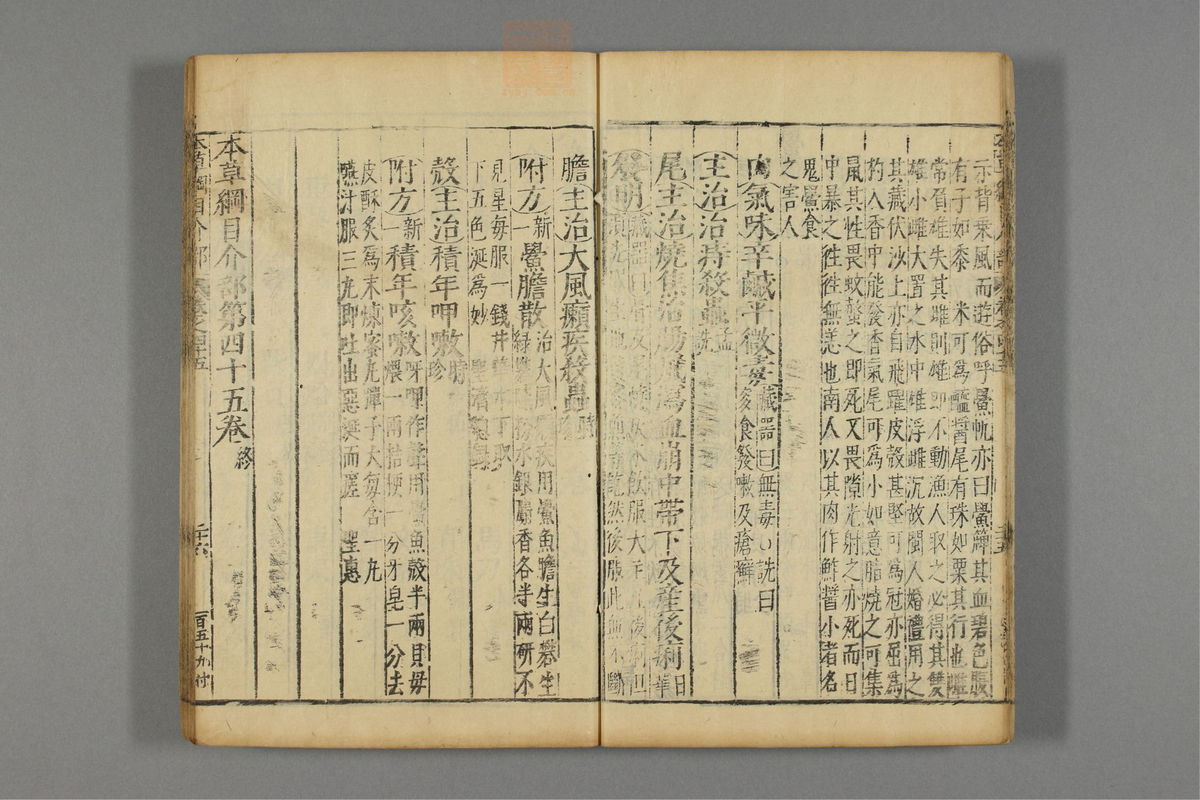 示背乗風而遊俗呼鱟帆亦曰鱟簰其血碧色腹
有子如黍米可為醢醬尾有珠如粟其行也
常負雄失其雌則雄即不動漁人取之必得其雙
雄小雌大置之水中雄浮雌沉故閩人婚禮用之
其藏伏沙上亦自飛躍皮殼甚堅可為冠亦屈為
杓入香中能發香氣尾可為小如意脂燒之可集
鼠其性畏蚊螫之即死又畏隙光射之亦死而日
中暴之往往無恙也南人以其肉作鮓醬小者名
鬼鱟食
之害人
肉氣味辛鹹平微毒
藏器曰無毒○詵曰
多食發嗽及瘡癬
主治治痔殺蟲孟詵
尾主治燒焦治腸風瀉血崩中帶下及產後痢日華
發明藏器曰
然後服此無不斷
膽主治大風癩疾殺蟲時珍
附方新一鱟膽散治大風癩疾用鱟魚膽生白礬生
綠礬 水銀麝香各半兩研不
見星每服一錢井 下取
下五色涎為妙
殼主治積年呷嗽時珍
附方新一積年咳嗽呀呷作聲用鱟魚殼半兩貝母
煨一兩桔梗一分牙皂一分去
皮酥炙為末煉蜜丸彈子大每含一丸
嚥汁服三丸即吐出惡涎而瘥 聖惠
本草綱目介部第四十五卷終
本草綱目介部 卷之四十五 二十六 百五十九 付